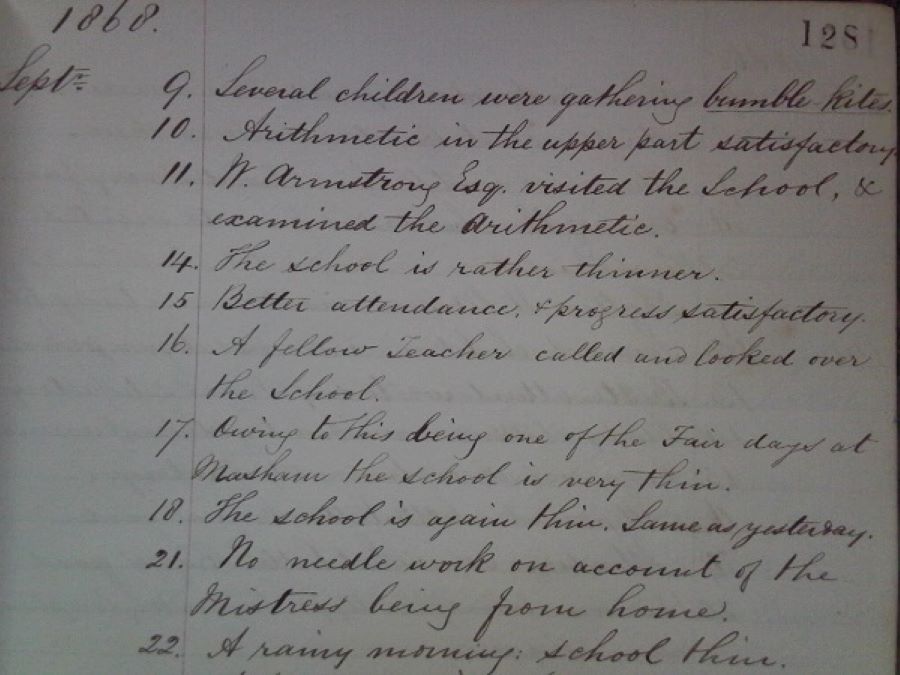 1868.
128
Septr 9. Several children were gathering bumble-kites.
10. Arithmetic in the upper part satisfactory.
11. W. Armstrong Esq. visited the School, &
examined the Arithmetic.
14. The school is rather thinner.
15 Better attendance, & progress satisfactory.
16. A fellow Teacher called and looked over
the School.
17. Owing to this being one of the Fair days at
Masham the school is very thin.
18. The school is again thin. Same as yesterday.
21. No needle work on account of the
Mistress being from home.
22. A rainy morning: school thin.